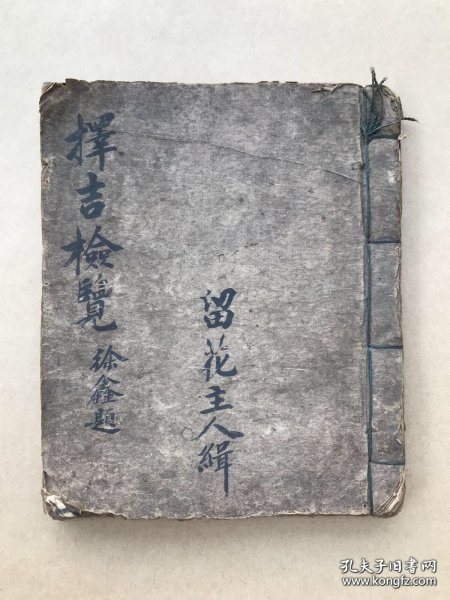 擇吉檢覽
徐鑫題
留花主人緝
孔夫子旧书网
www.kongfz.com